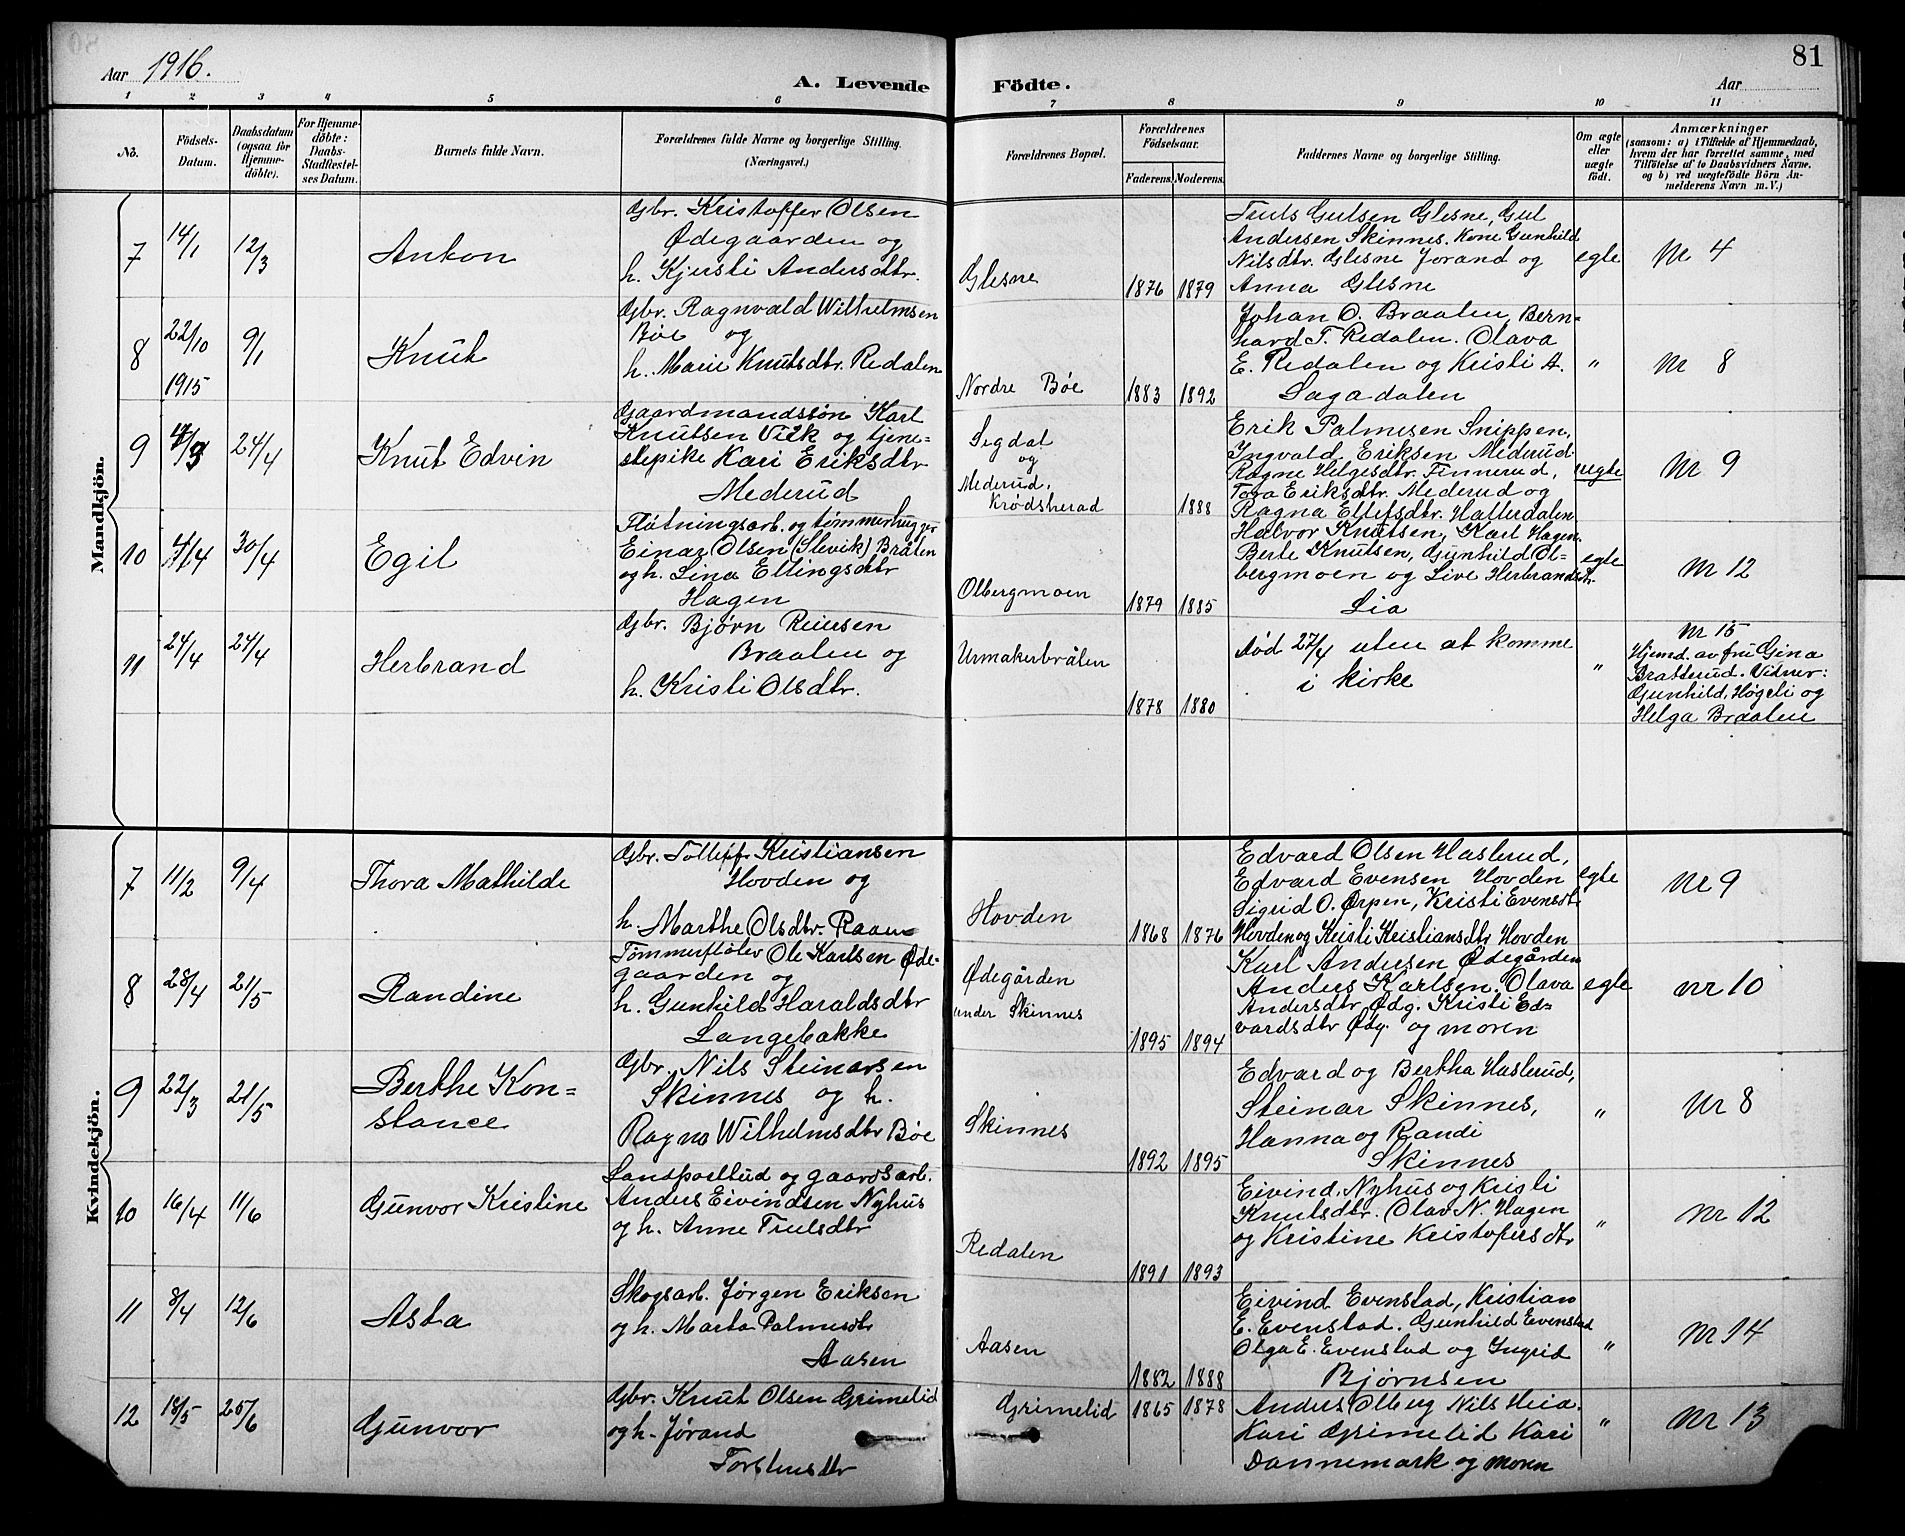 81
Aar 1916.
A. Levende
Födte.
Aar
1 2 3 4 5 6 7 8 9 10 11
No.
Födsels-Datum.
Daabsdatum (ogsaa for Hjemme-döbte).
For Hjemme-döbte: Daabs-Stadfæstel-ses Datum.
Barnets fulde Navn.
Forældrenes fulde Navne og borgerlige Stilling. (Næringsvei.)
Forældrenes Bopæl.
Forældrenes Födselsaar.
Faderens. Moderens.
Faddernes Navne og borgerlige Stilling.
Om ægte eller uægte födt.
Anmærkninger
(saasom: a) i Tilfælde af Hjemmedaab,
hvem der har forrettet samme, med
Tilföielse af to Daabsvidners Navne,
og b) ved uægtefödte Börn An-
melderens Navn m. V.)
Mandkjön.
7 14/1 12/3 Anton
Gbr. Kristoffer Olsen
Ødegaarden og
h. Kjersti Andersdtr.
Glesne 1876 1879
Truls Gulsen Glesne, Gul
Andersen Skinnes. Kone Gunhild
Nilsdtr. Glesne Jorand og
Anna Glesne
egte Nr 4
8 22/10 1915 9/1 Knut
Gbr. Ragnvald Wilhelmsen
Bøe og
h. Marie Knutsdtr. Redalen
Nordre Bøe 1883 1892
Johan O. Braaten, Bern=
hard T. Redalen. Olava
E. Redalen og Kristi A.
Sagadalen
" Nr 8
9 24/4 Knut Edvin
Gaardmandssøn Karl
Knutsen Vik og tjene=
stepike Kari Eriksdtr
Mederud
Sigdal
og
Mederud,
Krødsherad
1888
Erik Palmesen Snippen,
Ingvald Eriksen Mederud
Ragne Helgesdtr. Finnerud,
Tora Eriksdtr. Mederud og
Ragna Ellefsdtr. Hallerdalen
uegte Nr 9
10 4/4 30/4 Egil
Fløtningsarb. og tømmerhugger
Einar Olsen (Slevik) Bråten
og h. Lina Ellingsdtr
Hagen
Olbergmoen 1879 1885
Halvor Knutsen, Karl Hagen.
Berte Knutsen, Gunhild Ol-
bergmoen og Live Herbrandsdtr.
Lia
egte Nr 12
11 24/4 24/4 Herbrand
Gbr. Bjørn Reiersen
Braaten og
h. Kristi Olsdtr.
Urmakerbråten 1878 1880
Død 27/4 uten at komme
i kirke
"
Nr 15
Hjemd. av fru Gina
Bratterud. Vidner:
Gunhild Høgeli og
Helga Braaten
Kvindekjön.
7 11/2 9/4 Thora Mathilde
Gbr. Tollef Kristiansen
Hovden og
h. Marthe Olsdtr. Raaen
Hovden 1868 1876
Edvard Olsen Haslerud,
Edvard Evensen Hovden
Sigrid O. Ørpen, Kristi Evensdtr
Hovden og Kristi Kristiansdtr Hovden
egte Nr 9
8 28/4 21/5 Randine
Tømmerfløter Ole Karlsen Øde-
gaarden og
h. Gunhild Haraldsdtr
Langebakke
Ødegården
under Skinnes
1895 1894
Karl Andersen Ødegården
Anders Karlsen. Olava
Andersdtr Ødg. Kristi Ed-
vardsdtr Ødg. og moren
egte nr 10
9 22/3 21/5 Berthe Kon=
stance
Gbr. Nils Steinarsen
Skinnes og h.
Ragna Wilhelmsdtr Bøe
Skinnes 1892 1895
Edvard og Bertha Haslerud,
Steinar Skinnes,
Hanna og Randi
Skinnes
" Nr 8
10 16/4 11/6 Gunvor Kristine
Landpostbud og gaardsarb.
Anders Eivindsen Nyhus
og h. Anne Trulsdtr
Redalen 1891 1893
Eivind Nyhus og Kristi
Knutsdtr. Olav N. Hagen
og Kristine Kristofersdtr
" Nr 12
11 8/4 12/6 Asta
Skogsarb. Jørgen Eriksen
og h. Marta Palmesdtr
Aasen
Aasen 1882 1888
Eivind Evenstad, Kristian
E. Evenstad. Gunhild Evenstad
Olga E. Evenstad og Ingrid
Bjørnsen
" Nr 14
12 18/5 25/6 Gunvor
Gbr. Knut Olsen Grimelid
og h. Jørand
Torstensdtr
Grimelid 1865 1878
Anders Olberg Nils Heia.
Kari Grimelid Kari
Dannemark og moren
" Nr 13